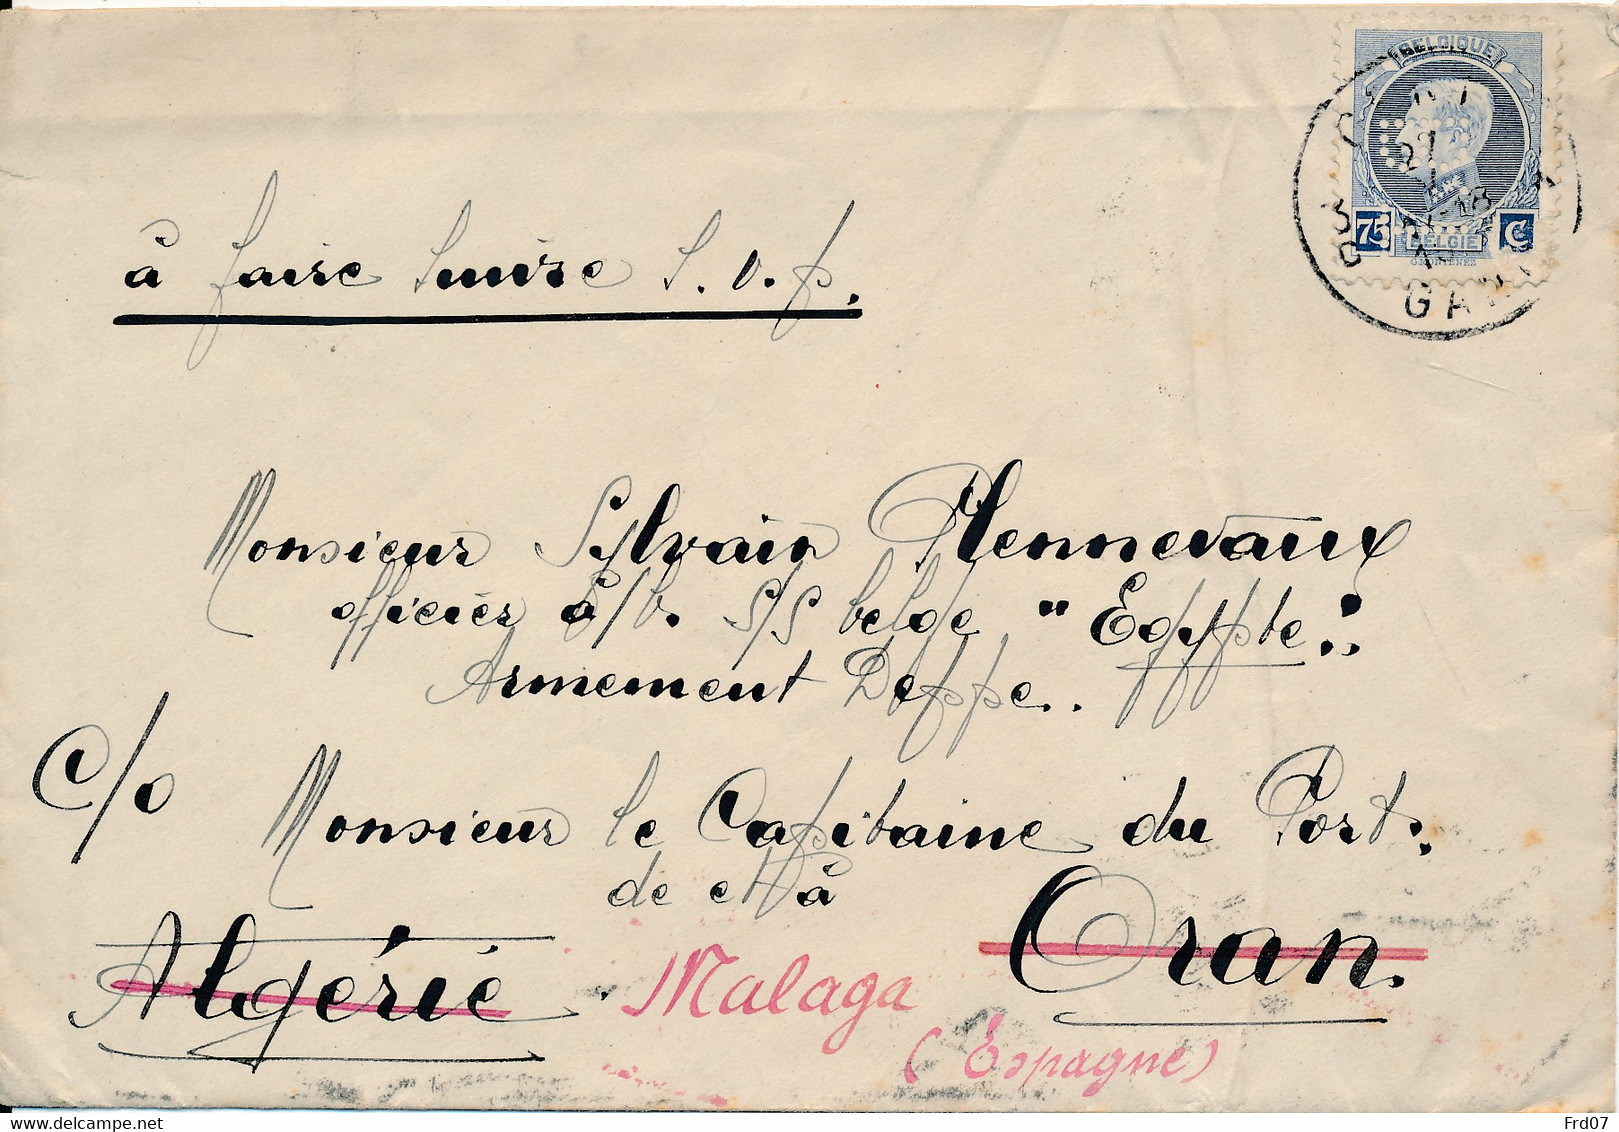 BELGIQUE
27
75 C
BELGIE
GAN
à faire suivre S. V. p.
Monsieur Sylvain Hennevaux
officier à/b. S/S belge "Egypte".
Armement Deppe.
C/o
Monsieur le Capitaine du Port.
de et à
Oran.
Algérie. Malaga
(Espagne)
delcampe.net
Frd07